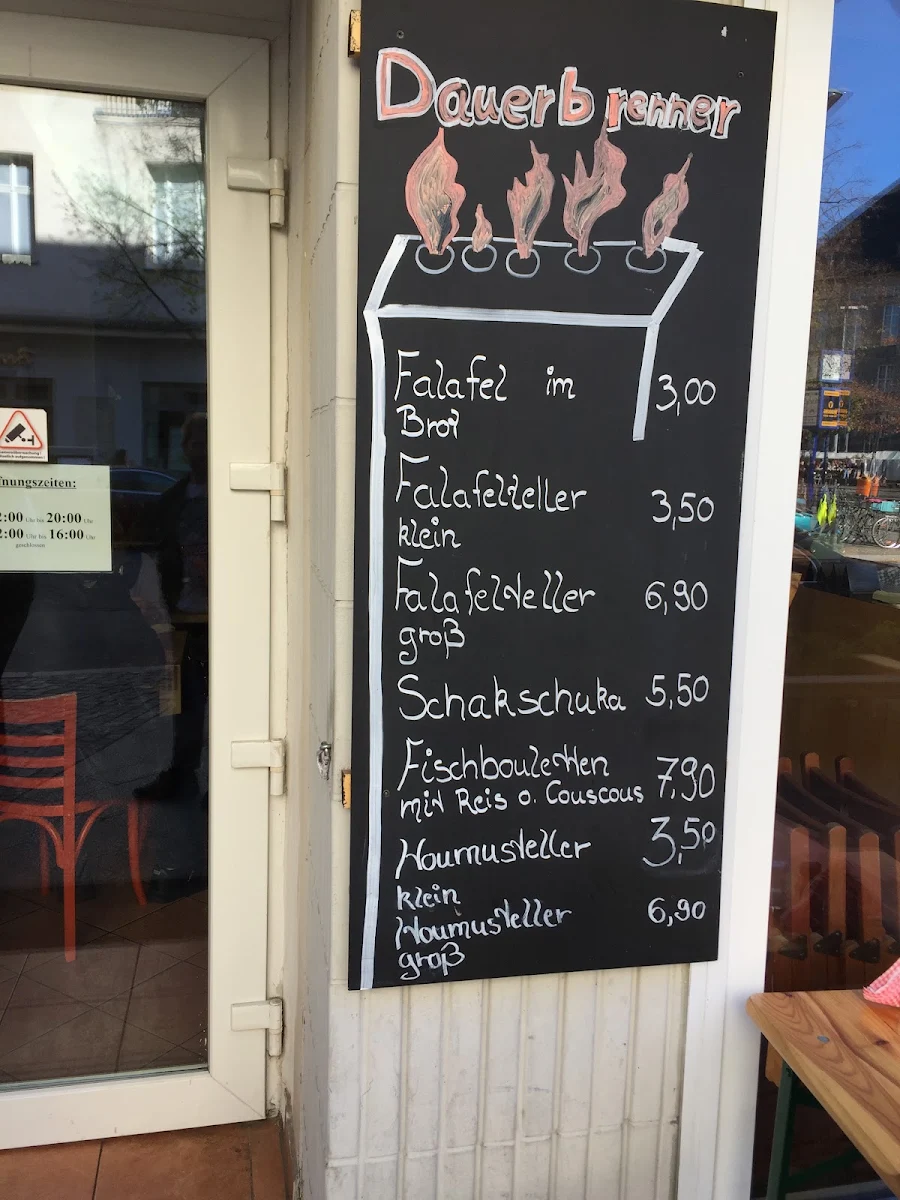 Dauerbrenner
Falafel im 3,00
Brot
Falafelteller 3,50
klein
Falafelteller 6,90
groß
Schakschuka 5,50
Fischbouletten 7,90
mit Reis o. Couscous
Houmusteller 3,50
klein
Houmusteller 6,90
groß
fnungszeiten:
2:00 Uhr bis 20:00 Uhr
2:00 Uhr bis 16:00 Uhr
geschlossen